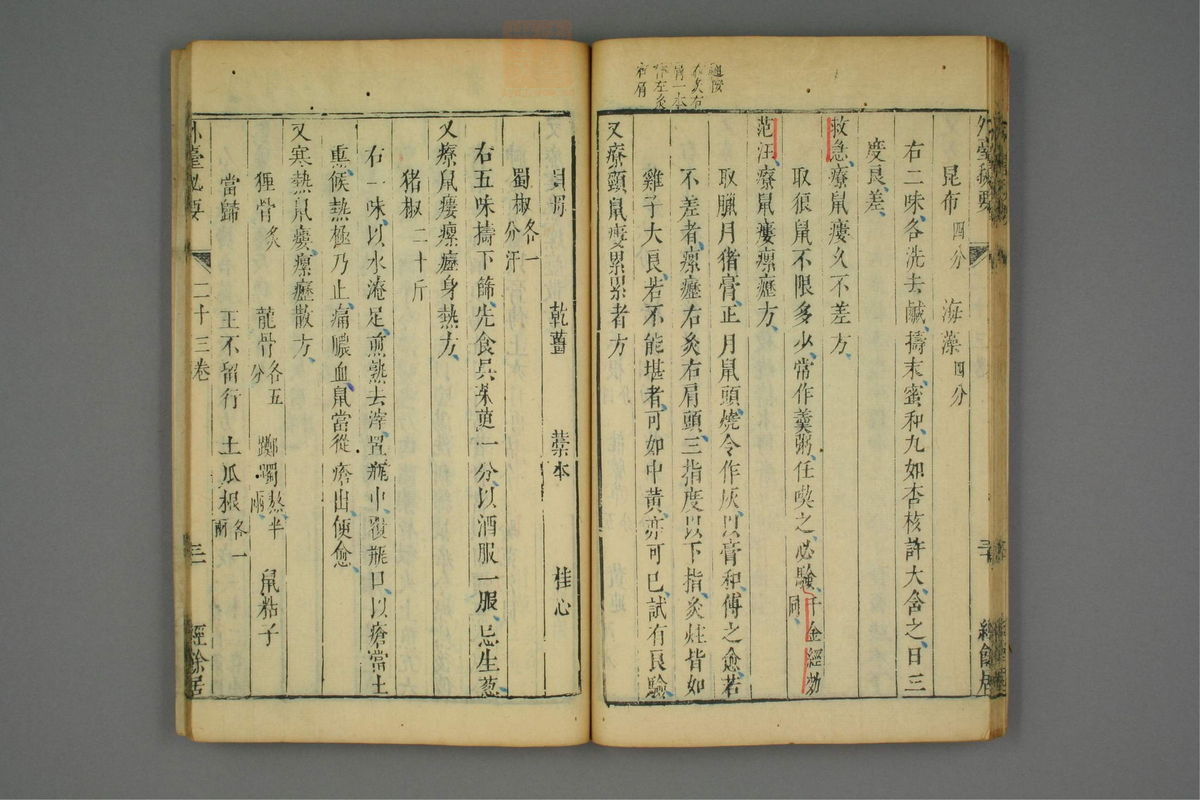 外臺秘要
昆布四分 海藻四分
右二味各洗去鹹擣末蜜和九如杏核許大含之日三
度良差
救急療鼠瘻久不差方
取狼鼠不限多少常作羹粥任喫之必驗千金經効同
范汪療鼠瘻瘰癧方
取臘月猪膏正月鼠頭燒令作灰以膏和傅之愈若
不差者瘰癧右灸右肩頭三指度以下指灸炷皆如
雞子大良若不能堪者可如中黄亦可已試有良驗
又療頸鼠瘻累累者方
右灸右
肩一本
作左灸
右肩
乾薑 藁本 桂心
蜀椒各一分汗
右五味擣下篩先食吳茱萸一分以酒服一服忌生葱
又療鼠瘻瘰癧身熱方
猪椒二十斤
右一味以水淹足煎熟去滓置瓶中覆瓶口以瘡當上
熏候熱極乃止痛膿血鼠當從瘡出便愈
又寒熱鼠瘻瘰癧散方
狸骨炙 龍骨各五分 躑躅熬半兩 鼠粘子
當歸 王不留行 土瓜根各一兩
外臺秘要 二十三卷 三 經餘居